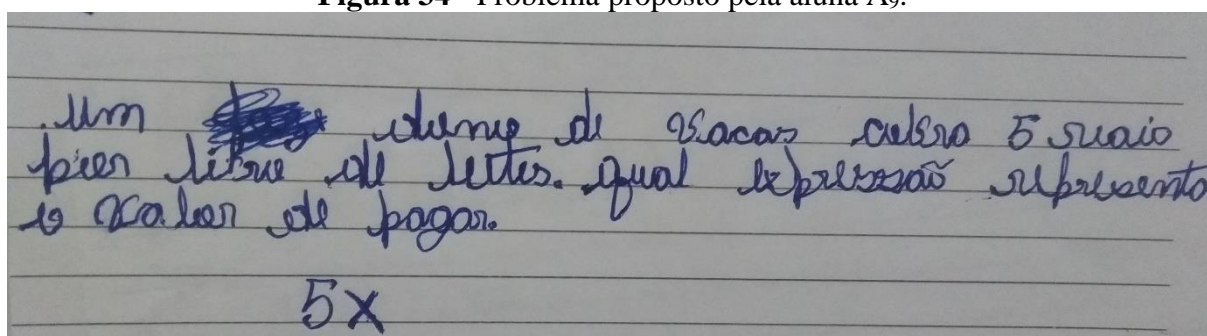 Figura 34 - Problema proposto pela aluna A9.
.Um dono de vacas cobra 5 reais
por litro de leites. qual expressão representa
o valor de pagar.
5x